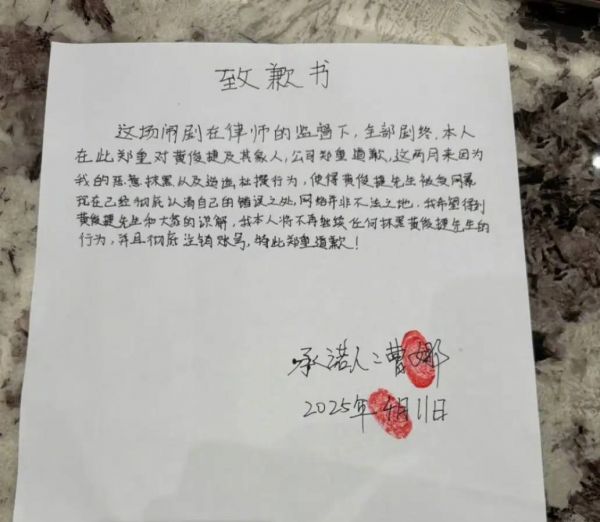 致歉书
这场闹剧在律师的监督下，全部剧终，本人
在此郑重对黄俊捷及其家人，公司郑重道歉，这两月来因为
我的恶意抹黑以及造谣杜撰行为，使得黄俊捷先生被网暴
现在已经彻底认清自己的错误之处，网络并非不法之地，我希望得到
黄俊捷先生和大众的谅解，我本人将不再继续任何抹黑黄俊捷先生的
行为，并且彻底注销账号，特此郑重道歉！
承诺人：曹娜
2025年4月11日